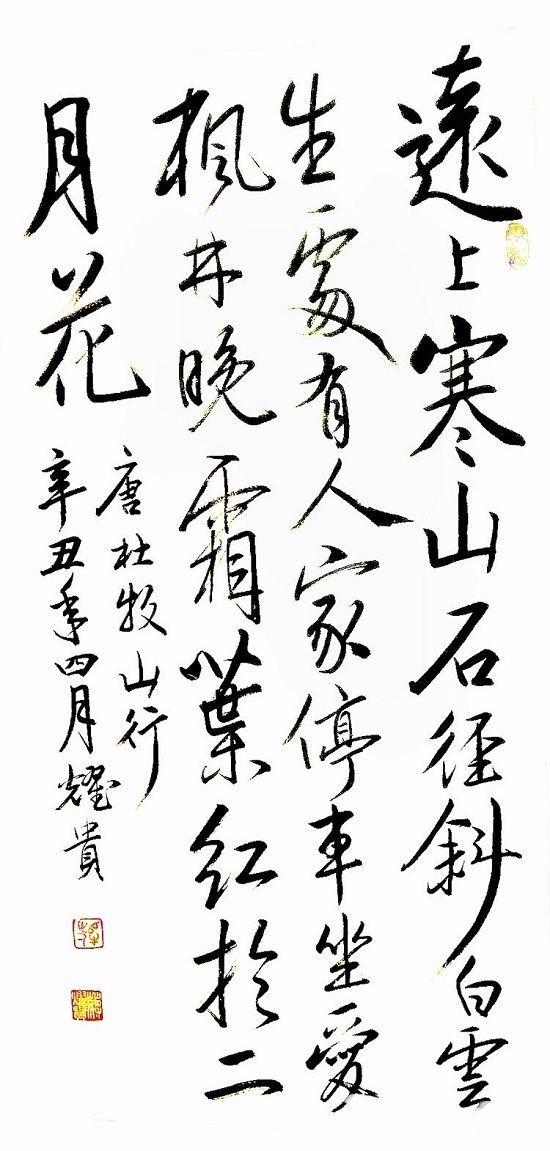 遠上寒山石径斜白雲
生處有人家停車坐愛
楓林晚霜葉红於二
月花
唐杜牧山行
辛丑年四月耀貴